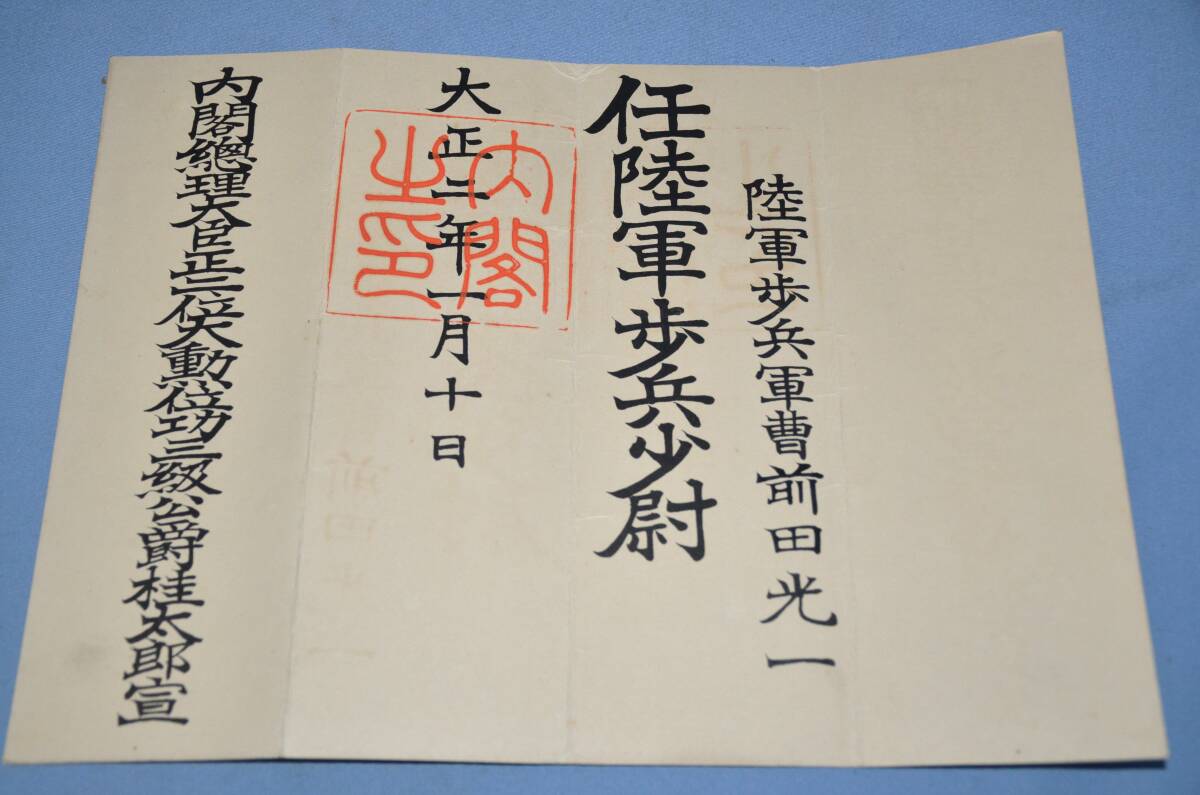 陸軍歩兵軍曹前田光一
任陸軍歩兵少尉
大正二年一月十日
内閣之印
内閣總理大臣正二位大勲位功三級公爵桂太郎宣